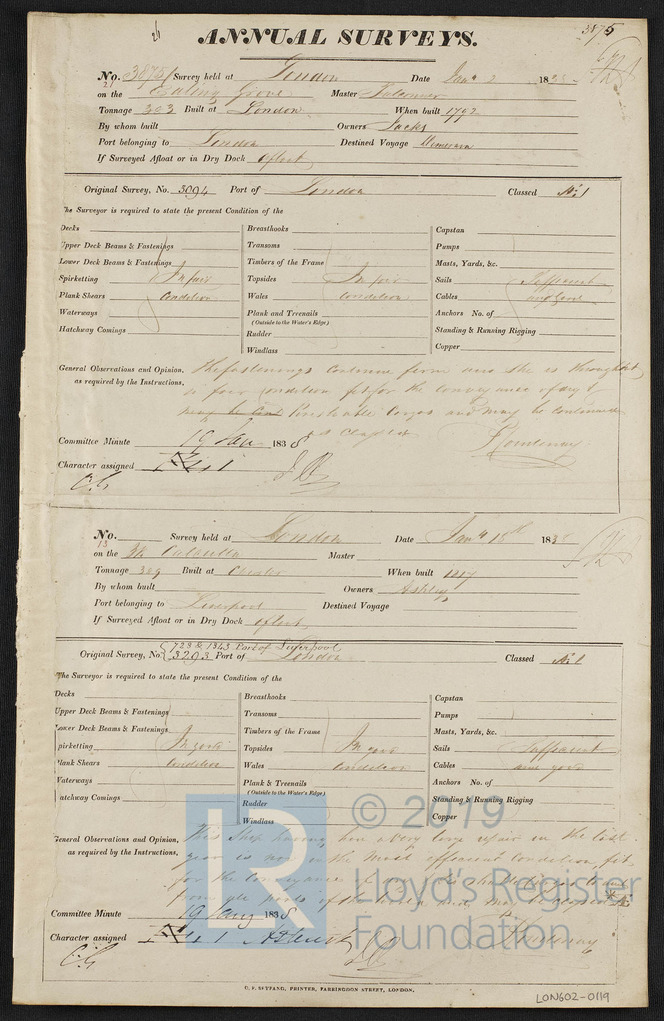 3875
ANNUAL SURVEYS.
No. 3875 Survey held at London Date Jany 2 1838
on the Ealing Grove Master Falconer
Tonnage 303 Built at London When built 1792
By whom built Owners Jacks
Port belonging to London Destined Voyage Demerara
If Surveyed Afloat or in Dry Dock Afloat
Original Survey, No. 3094 Port of London Classed Æ 1
The Surveyor is required to state the present Condition of the
Decks Breasthooks Capstan
Upper Deck Beams & Fastenings Transoms Pumps
Lower Deck Beams & Fastenings Timbers of the Frame Masts, Yards, &c.
Spirketting In fair Topsides In fair Sails Sufficient
Plank Shears Condition Wales Condition Cables and good
Waterways Plank and Treenails Anchors No. of
(Outside to the Water's Edge)
Hatchway Comings Rudder Standing & Running Rigging
Windlass Copper
General Observations and Opinion, The fastenings continue firm and she is throughout
as required by the Instructions, in fair condition fit for the conveyance of dry &
Perishable Cargos and may be continued
as Classed
Committee Minute 19 Jany 1838
Character assigned Æ 1
No. Survey held at London Date Jany 15th 1838
13
on the Master
Tonnage 329 Built at Chester When built 1817
By whom built Owners Ashley
Port belonging to Liverpool Destined Voyage
If Surveyed Afloat or in Dry Dock Afloat
728 & 1343 Port of Liverpool
Original Survey, No. 3293 Port of London Classed Æ 1
The Surveyor is required to state the present Condition of the
Decks Breasthooks Capstan
Upper Deck Beams & Fastenings Transoms Pumps
Lower Deck Beams & Fastenings Timbers of the Frame Masts, Yards, &c.
Spirketting In good Topsides In good Sails Sufficient
Plank Shears Condition Wales Condition Cables and good
Waterways Plank & Treenails Anchors No. of
(Outside to the Water's Edge)
Hatchway Comings Rudder Standing & Running Rigging
Windlass Copper
General Observations and Opinion, This Ship having had a very large repair in the last
as required by the Instructions, year is now in the most efficient Condition fit
for the conveyance of dry & Perishable Cargos
from all parts of the World and may be classed
Committee Minute 19 Jany 1838
Character assigned Æ 1
© 2019
LR Lloyd's Register
Foundation
C. F. SEYFANG, PRINTER, FARRINGDON STREET, LONDON.
LON602-0119